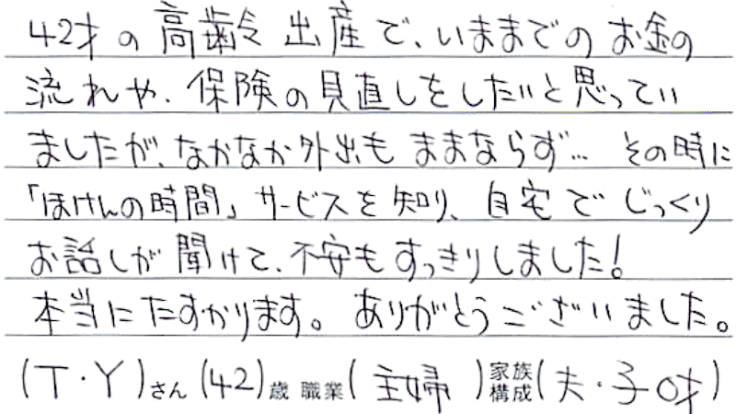 42才の高齢出産で、いままでのお金の
流れや、保険の見直しをしたいと思ってい
ましたが、なかなか外出もままならず… その時に
「ほけんの時間」サービスを知り、自宅でじっくり
お話しが聞けて、不安もすっきりしました!
本当にたすかります。ありがとうございました。
(T・Y)さん(42)歳 職業(主婦)家族構成(夫・子0才)